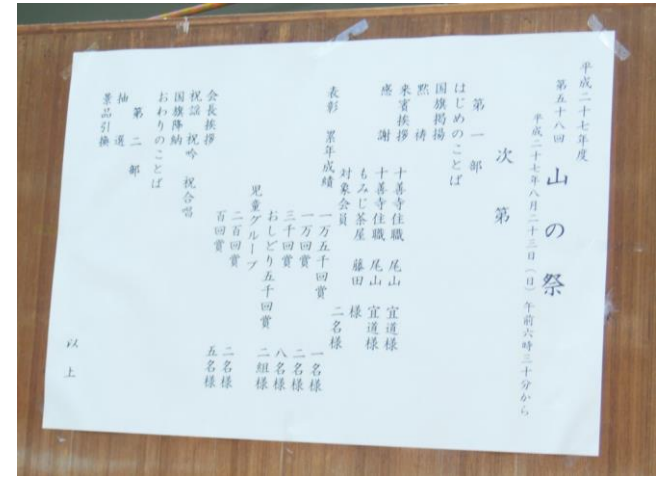 平成二十七年度
第五十八回 山の祭
平成二十七年八月二十三日(日)午前六時三十分から
次第
第一部
はじめのことば
国旗掲揚
黙祷
来賓挨拶 十善寺住職 尾山 宜道様
感謝 十善寺住職 尾山 宜道様
もみじ茶屋 藤田 様
対象会員 二名様
表彰 累年成績
一万五千回賞 一名様
一万回賞 二名様
三千回賞 八名様
おしどり五千回賞 二組様
児童グループ
二百回賞 二名様
百回賞 五名様
会長挨拶
祝謡 祝吟 祝合唱
国旗降納
おわりのことば
第二部
抽選
景品引換
以上